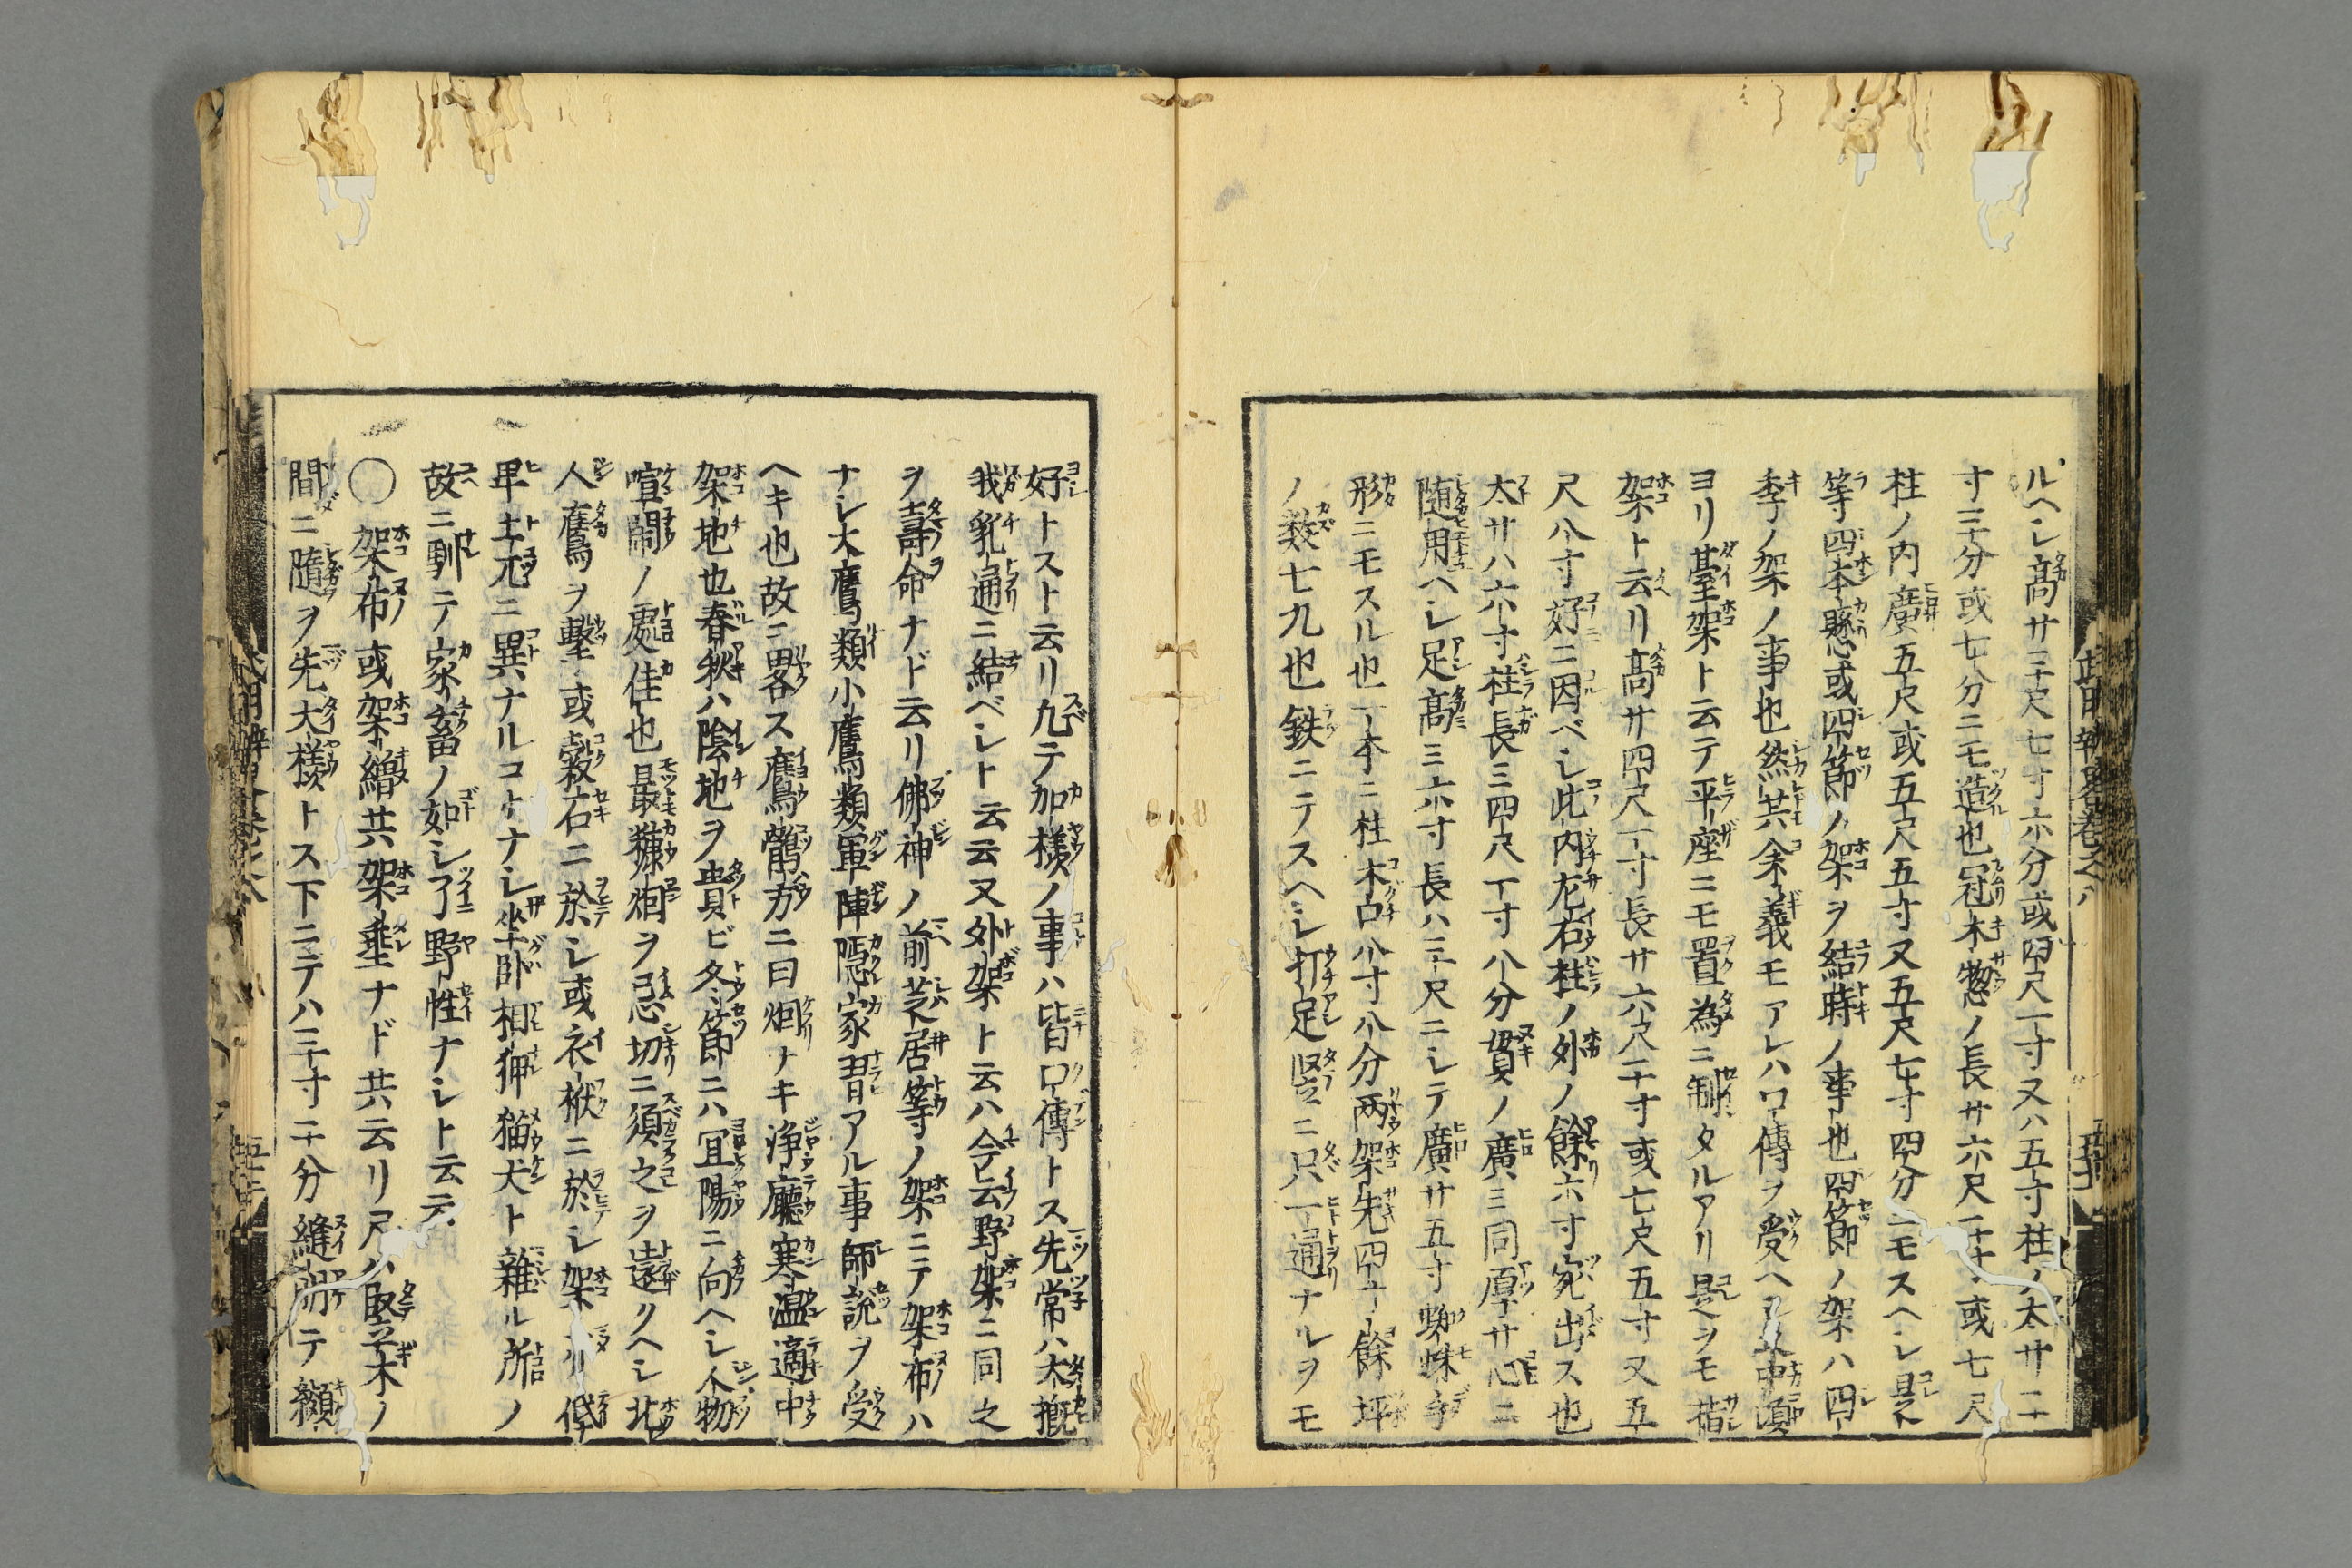 ルヘシ高サ三尺七寸六分或四尺一寸又ハ五寸柱ノ太サ二
寸三分或七分ニモ造也冠木惣ノ長サ六尺二寸或七尺
柱ノ内廣五尺或五尺五寸又五尺七寸四分ニモスヘシ是
等四本懸或四節ノ架ヲ結時ノ事也四節ノ架ハ四
季ノ架ノ事也然共余義モアレハ口傳ヲ受ヘシ中頃
ヨリ臺架ト云テ平座ニモ置為ニ制タルアリ是ヲモ楷
架ト云リ高サ四尺一寸長サ六尺二寸或七尺五寸又五
尺八寸好ニ因ベシ此内左右柱ノ外ノ餘六寸宛出ス也
太サハ六寸柱長三四尺一寸八分貫ノ廣三同厚サ心ニ
随用ヘシ足高三六寸長ハ三尺ニシテ廣サ五寸蜘蛛手
形ニモスル也一本ニ柱木口八寸八分両架先四寸餘坪
ノ数七九也鉄ニテスヘシ打足竪ニ只一通ナルヲモ
好トスト云リ九テ加様ノ事ハ皆口傳トス先常ハ大概
我乳通ニ結ベシト云云又外架ト云ハ今云野架ニ同之
ヲ壽命ナド云リ佛神ノ前芝居等ノ架ニテ架布ハ
ナシ大鷹類小鷹類軍陣隠家習アル事師説ヲ受
ヘキ也故ニ畧ス鷹鶻方ニ曰烟ナキ浄廳寒温適中
架地也春秋ハ陰地ヲ貴ビ冬節ニハ宜陽ニ向ヘシ人物
喧閙ノ處佳也最糠烟ヲ忌切ニ須之ヲ遠クヘシ北
人鷹ヲ繫或穀石ニ於シ或衣桁ニ於シ架低
早土冗ニ異ナルコトナシ坐臥相狎猫犬ト雜ル所ノ
故ニ馴テ家畜ノ如シ了野性ナシト云云
〇架布或架繒共架垂ナド共云リ尺ハ竪木ノ
間ニ隨ヲ先大様トス下ニテハ三寸二分縫開テ纐